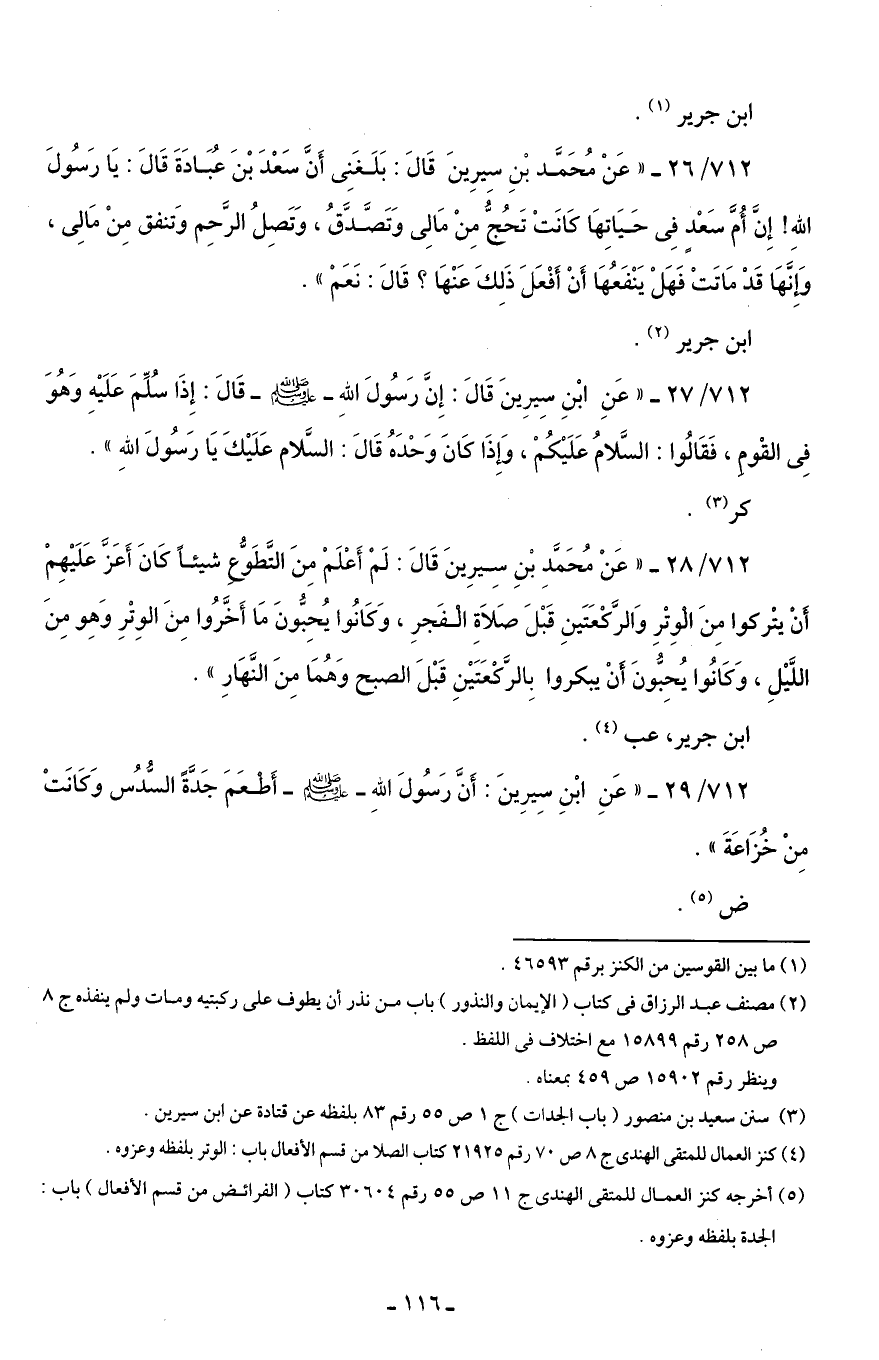 ابن جرير (١) .
٢٦/٧١٢ ـ « عَنْ مُحَمَّد بْنِ سِيرِينَ قَالَ : بَلَغَنِى أَنَّ سَعْدَ بْنَ عُبَادَةَ قَالَ : يَا رَسُولَ
اللهِ! إِنَّ أُمَّ سَعْدٍ فِى حَيَاتِهَا كَانَتْ تَحُجُّ مِنْ مَالِى وَتَصَّدَّقُ ، وَتَصِلُ الرَّحِم وَتنفق مِنْ مَالِى ،
وَإِنَّهَا قَدْ مَاتَتْ فَهَلْ يَنْفَعُهَا أَنْ أَفْعَلَ ذَلِكَ عَنْهَا ؟ قَالَ : نَعَمْ » .
ابن جرير (٢) .
٢٧/٧١٢ ـ « عَنِ ابْنِ سِيرِينَ قَالَ : إِنَّ رَسُولَ اللهِ ـ ﷺ ـ قَالَ : إِذَا سُلِّمَ عَلَيْهِ وَهُوَ
فِى القْومِ ، فَقَالُوا : السَّلامُ عَلَيْكُمْ ، وَإِذَا كَانَ وَحْدَهُ قَالَ : السَّلام عَلَيْكَ يَا رَسُولَ اللهِ » .
كر (٣) .
٢٨/٧١٢ ـ « عَنْ مُحَمَّدِ بْنِ سِيرِينَ قَالَ : لَمْ أَعْلَمْ مِنَ التَّطَوُّعِ شيئاً كَانَ أَعَزَّ عَلَيْهِمْ
أَنْ يتْركوا مِنَ الْوِتْرِ وَالرَّكْعَتَينِ قَبْلَ صَلاَةِ الْفَجرِ ، وَكَانُوا يُحبُّونَ مَا أَخَّرُوا مِنَ الوِتْرِ وَهو مِنَ
اللَّيْلِ ، وَكَانُوا يُحبُّونَ أَنْ يبكروا بِالرَّكْعَتَيْنِ قَبْلَ الصبح وَهُمَا مِنَ النَّهَارِ » .
ابن جرير، عب (٤) .
٢٩/٧١٢ ـ « عَنِ ابْنِ سِيرِينَ : أَنَّ رَسُولَ اللهِ ـ ﷺ ـ أَطْعَمَ جَدَّةً السُّدُس وَكَانَتْ
مِنْ خُزَاعَةَ » .
ض (٥) .
(١) ما بين القوسين من الكنز برقم ٤٦٥٩٣ .
(٢) مصنف عبد الرزاق فى كتاب ( الإيمان والنذور ) باب من نذر أن يطوف على ركبتيه ومات ولم ينفذه ج ٨
ص ٢٥٨ رقم ١٥٨٩٩ مع اختلاف فى اللفظ .
وينظر رقم ١٥٩٠٢ ص ٤٥٩ بمعناه .
(٣) سنن سعيد بن منصور ( باب الجدات ) ج ١ ص ٥٥ رقم ٨٣ بلفظه عن قتادة عن ابن سيرين .
(٤) كنز العمال للمتقى الهندى ج ٨ ص ٧٠ رقم ٢١٩٢٥ كتاب الصلا من قسم الأفعال باب : الوتر بلفظه وعزوه .
(٥) أخرجه كنز العمال للمتقى الهندى ج ١١ ص ٥٥ رقم ٣٠٦٠٤ كتاب ( الفرائض من قسم الأفعال ) باب :
الجدة بلفظه وعزوه .
ـ ١١٦ ـ